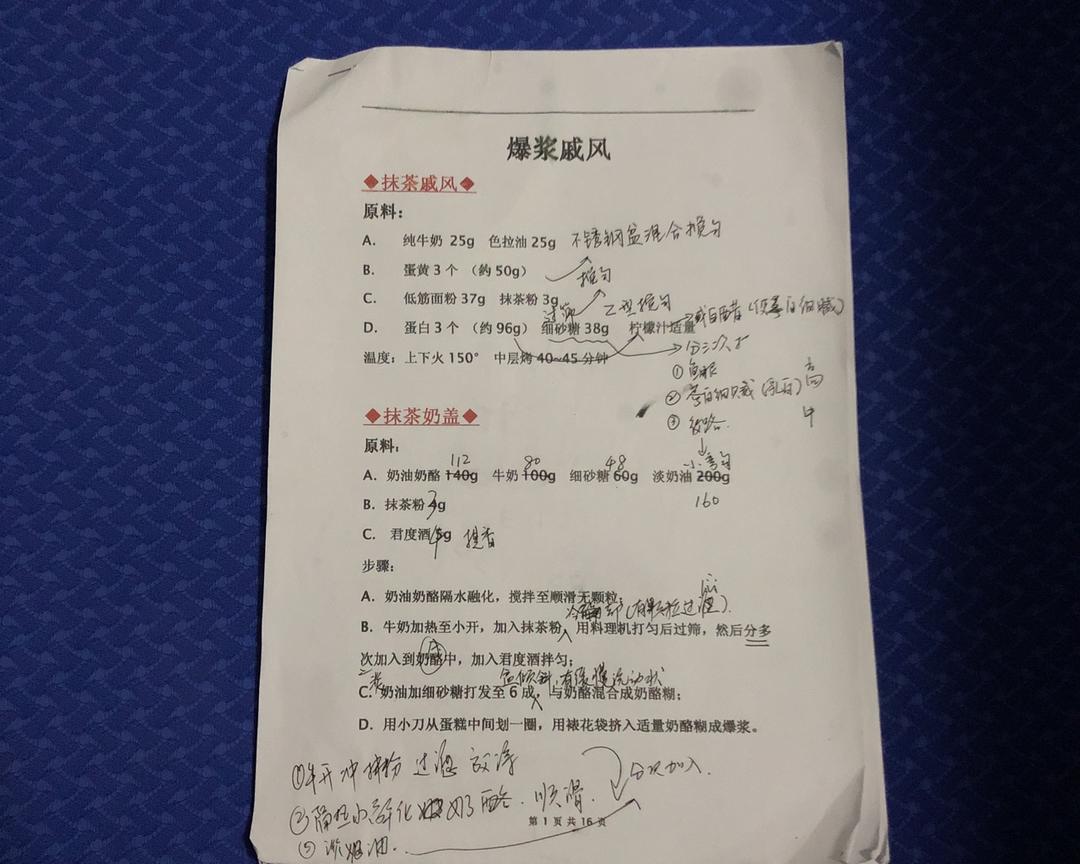 爆浆戚风
◆抹茶戚风◆
原料：
A. 纯牛奶 25g 色拉油 25g 不锈钢盆混合搅匀
B. 蛋黄 3 个 （约 50g） 搅匀
C. 低筋面粉 37g 抹茶粉 3g 过筛 Z型搅匀
D. 蛋白 3 个 （约 96g） 细砂糖 38g 柠檬汁适量 或白醋（使蛋白细腻）
温度：上下火 150° 中层烤 40~45 分钟 分三次打
①鱼眼
②蛋白细腻（乳白）高
③纹路 中
小弯勾
◆抹茶奶盖◆
原料：
112 80 48
A. 奶油奶酪 140g 牛奶 100g 细砂糖 60g 淡奶油 200g
160
B. 抹茶粉 4g 3
C. 君度酒 5g 4 提香
步骤：
A. 奶油奶酪隔水融化，搅拌至顺滑无颗粒
冷却（有颗粒过滤）
B. 牛奶加热至小开，加入抹茶粉，用料理机打匀后过筛，然后分多
次加入到奶酪中，加入君度酒拌匀；
盆倾斜，有缓慢流动状
C. 奶油加细砂糖打发至 6 成，与奶酪混合成奶酪糊；
D. 用小刀从蛋糕中间划一圈，用裱花袋挤入适量奶酪糊成爆浆。
①牛开冲抹粉 过滤 放凉
分次加入.
②隔热水融化奶酪. 顺滑.
第 1 页 共 16 页
③淡奶油.